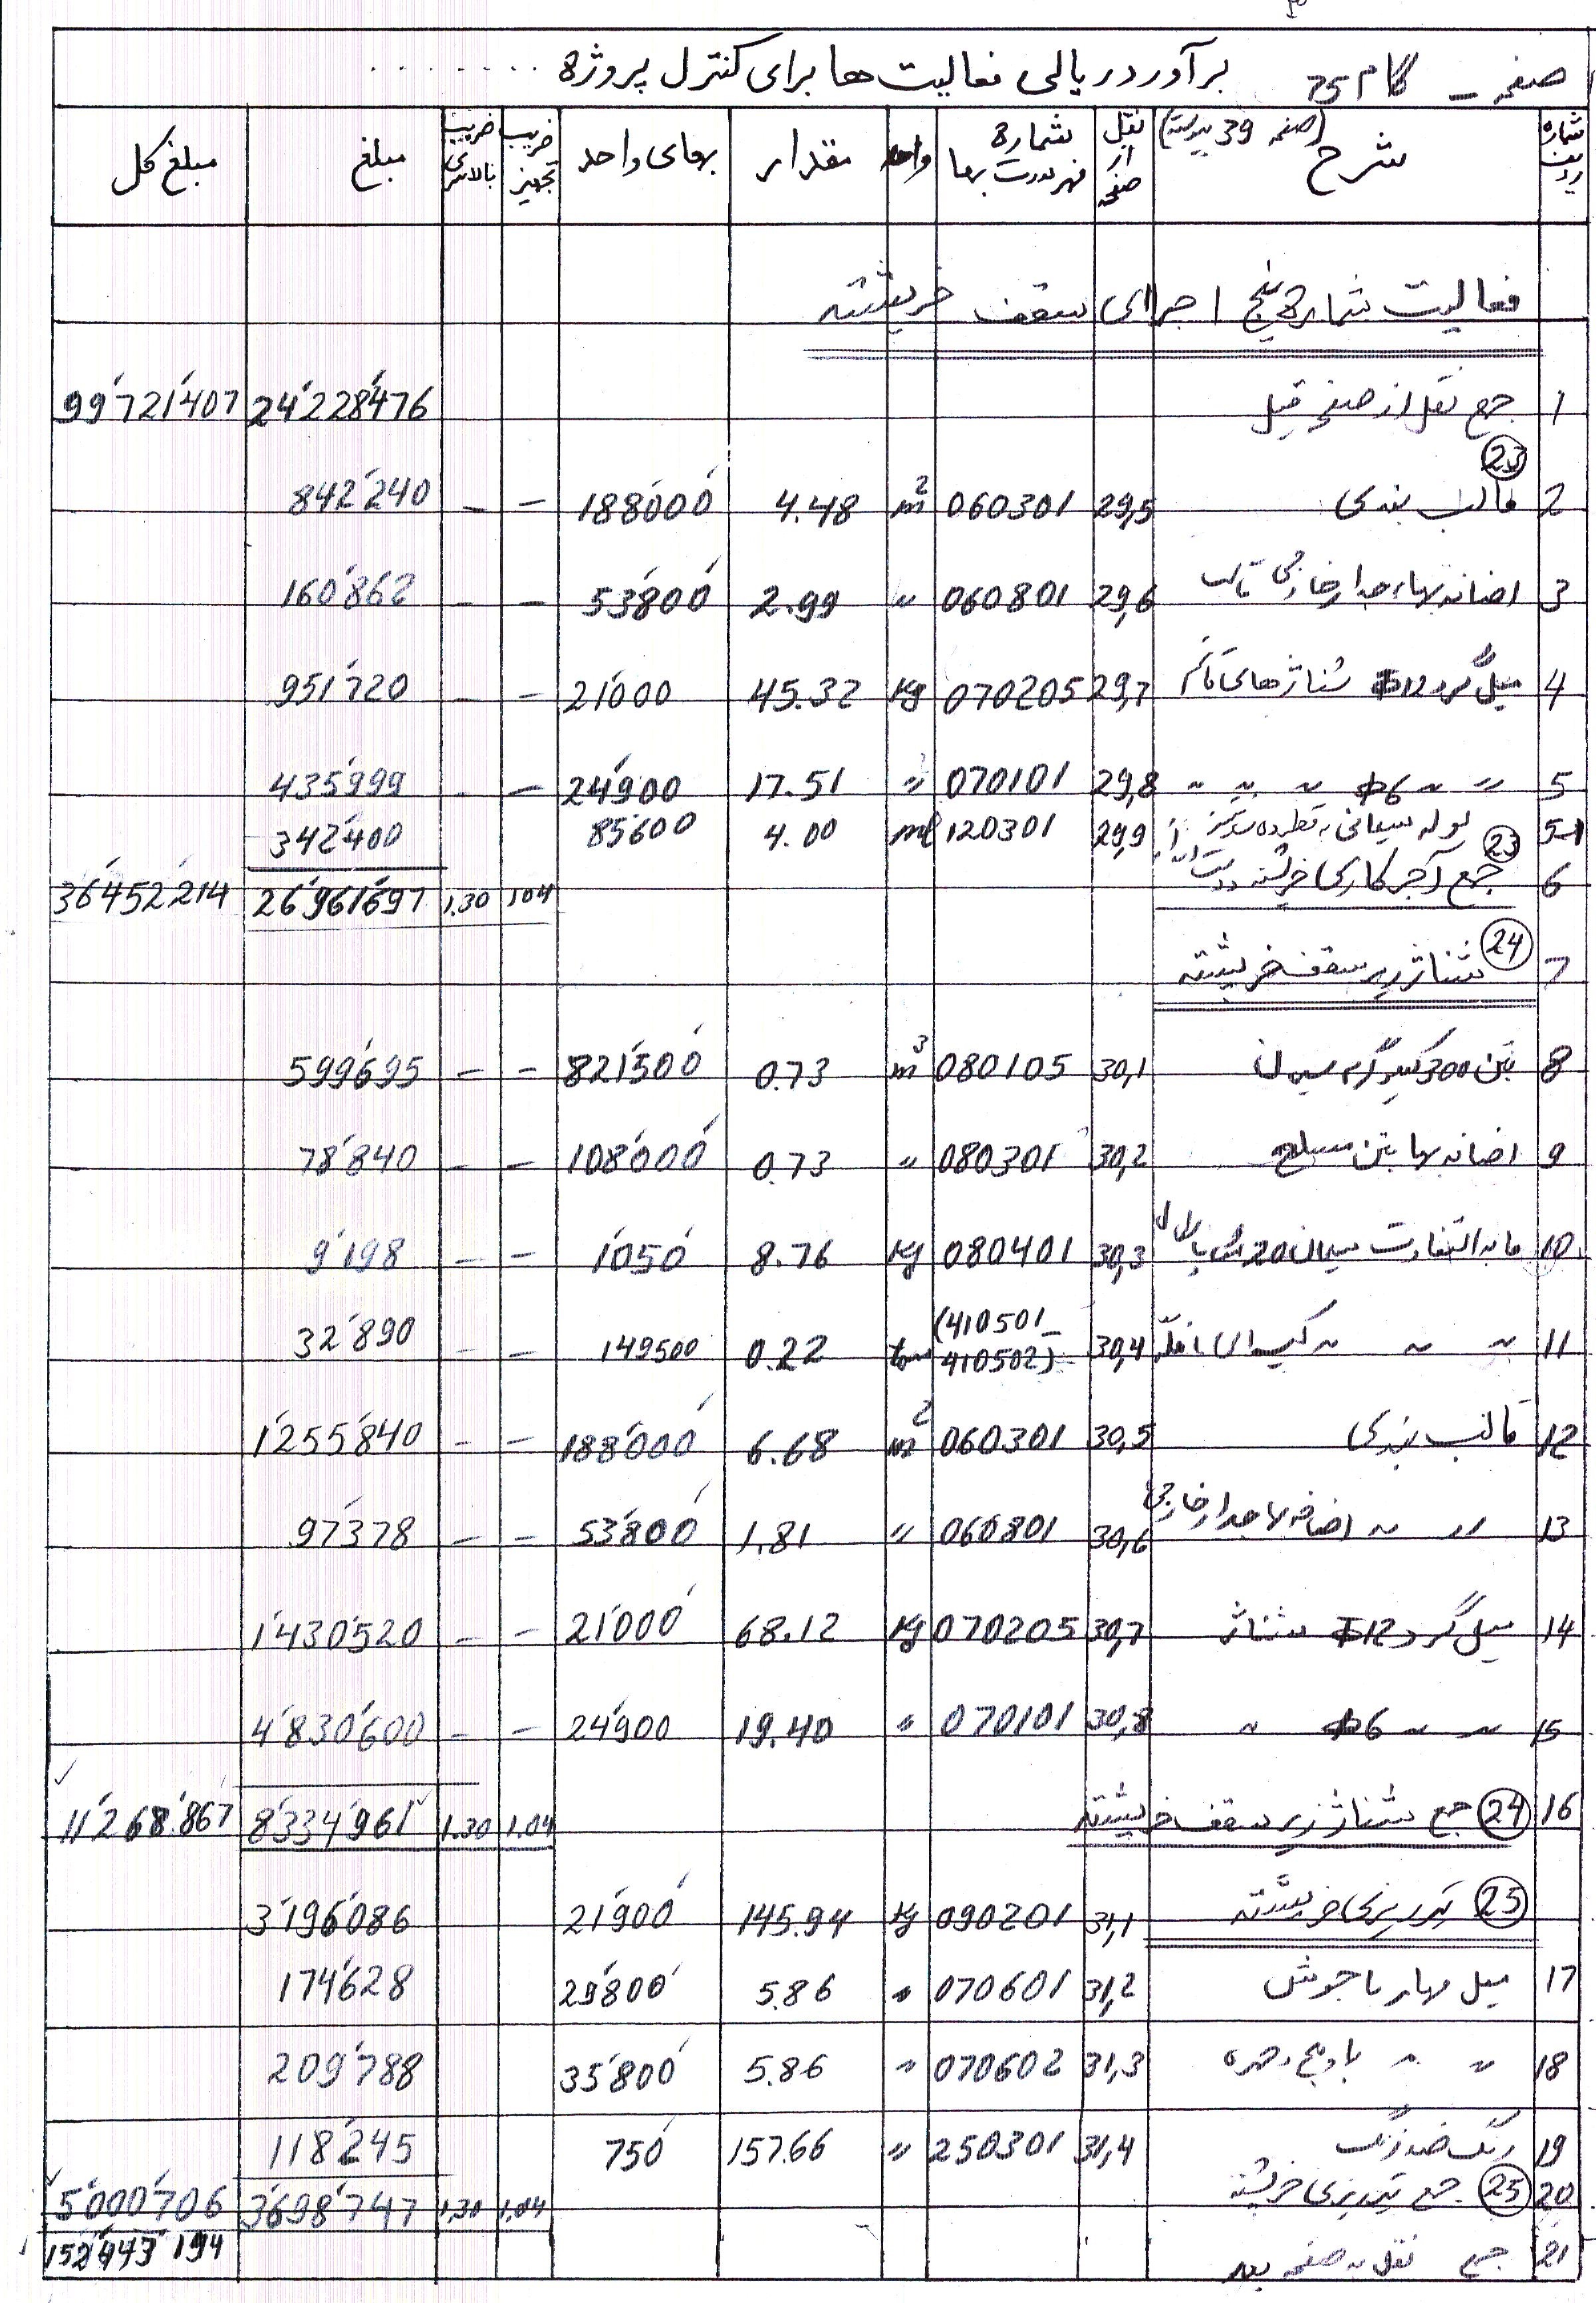 صفحه – گام 75 برآورد ریالی فعالیت ها برای کنترل پروژه ........
شماره ردیف | شرح (صفحه 39 پیوست) | نقل از صفحه | شماره فهرست بها | واحد | مقدار | بهای واحد | ضریب تجهیز | ضریب بالاسری | مبلغ | مبلغ کل
فعالیت شماره پنج اجرای سقف خرپشته
1 جمع نقل از صفحه قبل 24'228'476 99'721'407
23
2 قالب بندی 29,5 060301 m² 4.48 188'000 – – 842'240
3 اضافه بها، جدار خارجی قالب 29,6 060801 〃 2.99 53'800 – – 160'862
4 میل گرد Φ12 شناژهای قائم 29,7 070205 Kg 45.32 21'000 – – 951'720
5 〃 〃 Φ6 〃 〃 〃 29,8 070101 〃 17.51 24'900 – – 435'999
5-1 لوله سیمانی به قطر ده سانتیمتر 29,9 120301 ml 4.00 85'600 342'400
6 23 جمع آجرکاری خرپشته 1.04 1.30 26'961'697 36'452'214
7 24 شناژ زیر سقف خرپشته
8 بتن 300 کیلوگرم سیمان 30,1 080105 m³ 0.73 821'500 – – 599'695
9 اضافه بها بتن مسلح 30,2 080301 〃 0.73 108'000 – – 78'840
10 مابه التفاوت سیمان 30,3 080401 Kg 8.76 1'050 – – 9'198
11 〃 〃 〃 کیسه ای 30,4 (410501_ 410502) ton 0.22 149500 – – 32'890
12 قالب بندی 30,5 060301 m² 6.68 188'000 – – 1'255'840
13 〃 〃 اضافه بها جدار خارجی 30,6 060801 〃 1.81 53'800 – – 97'378
14 میل گرد Φ12 شناژ 30,7 070205 Kg 68.12 21'000 – – 1'430'520
15 〃 〃 Φ6 〃 30,8 070101 〃 19.40 24'900 – – 4'830'600
16 24 جمع شناژ زیر سقف خرپشته 1.04 1.30 8'334'961 11'268'867
25 تیرریزی خرپشته 31,1 090201 Kg 145.94 21'900 3'196'086
17 میل مهار با جوش 31,2 070601 〃 5.86 29'800 174'628
18 〃 〃 با پیچ و مهره 31,3 070602 〃 5.86 35'800 209'788
19 رنگ ضد زنگ 31,4 250301 〃 157.66 750 118'245
20 25 جمع تیرریزی خرپشته 1.04 1.30 3'698'747 5'000'706
21 جمع نقل به صفحه بعد 152'443'194